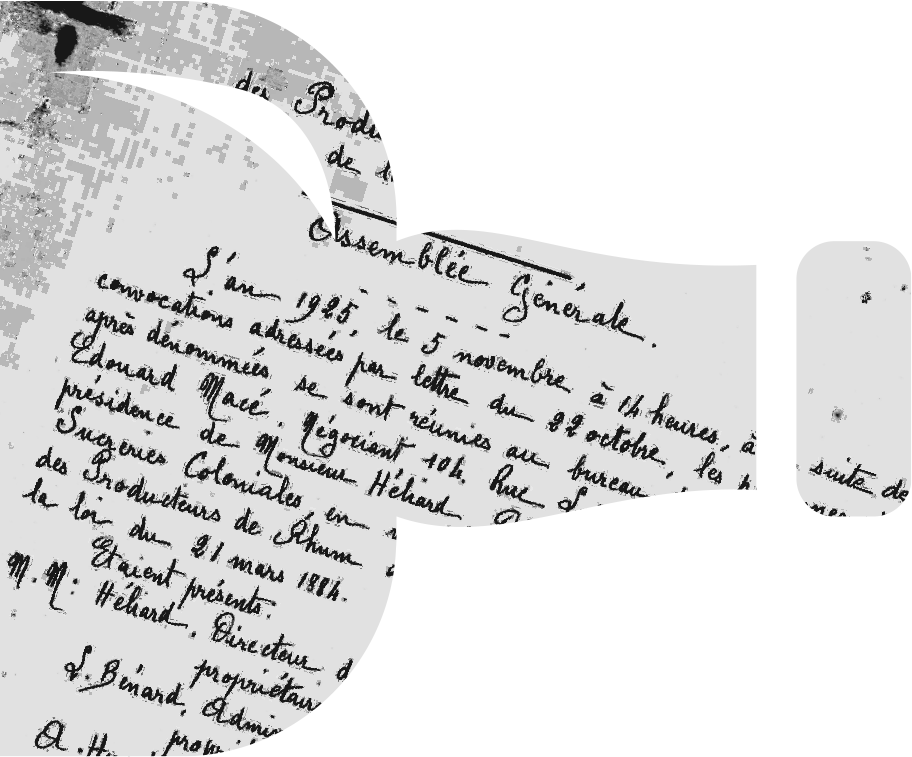 des Produ
de
Assemblée Générale.
L'an 1925, le 5 novembre à 14 heures, à suite de
convocations adressées par lettre du 22 octobre, les
après dénommées, se sont réunies au bureau
Edouard Macé, Négociant 104, Rue
présidence de Monsieur Héliard
Sucreries Coloniales, en
des Producteurs de Rhum
la loi du 21 mars 1884.
Etaient présents.
M.M: Héliard, Directeur d
propriétair
L. Bénard, Admin
A. propri